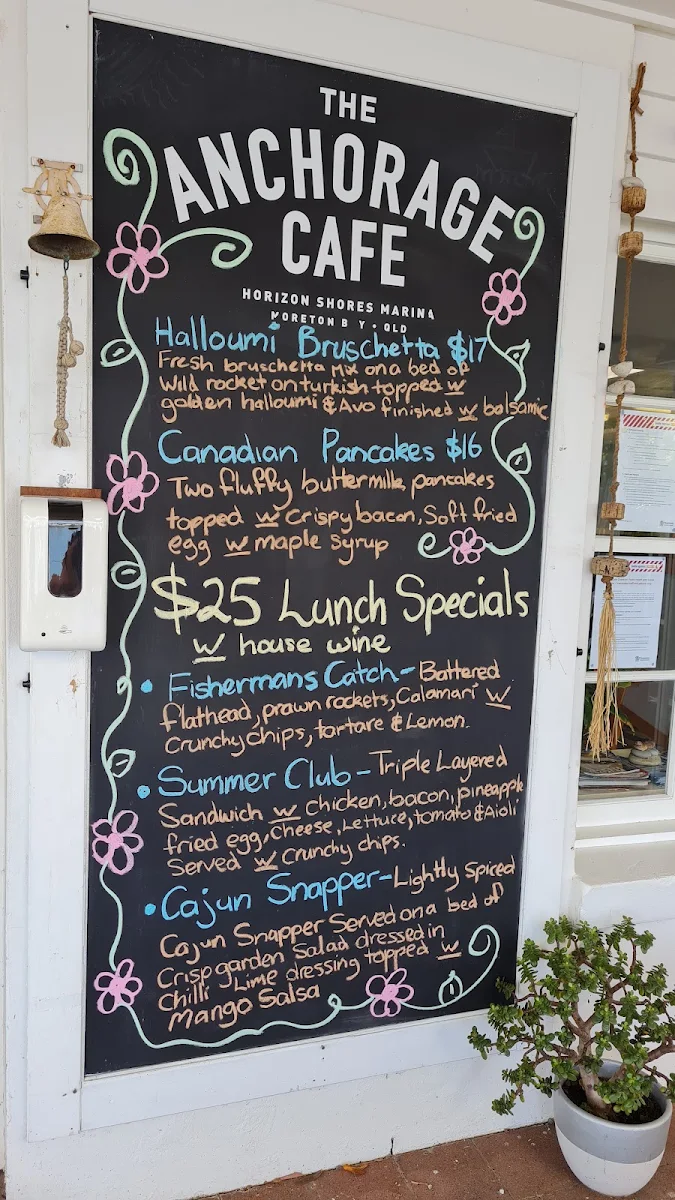 THE
ANCHORAGE
CAFE
HORIZON SHORES MARINA
MORETON B Y • QLD
Halloumi Bruschetta $17
Fresh bruschetta Mix on a bed of
Wild rocket on turkish topped w
golden halloumi & Avo finished w balsamic
Canadian Pancakes $16
Two fluffy buttermilk pancakes
topped w Crispy bacon, Soft fried
egg w maple syrup
$25 Lunch Specials
w house wine
• Fishermans Catch - Battered
flathead, prawn rockets, Calamari w
Crunchy chips, tartare & Lemon.
• Summer Club - Triple Layered
Sandwich w chicken, bacon, pineapple
fried egg, Cheese, Lettuce, tomato & Aioli
Served w crunchy chips.
• Cajun Snapper - Lightly Spiced
Cajun Snapper Served on a bed of
Crisp garden Salad dressed in
Chilli Lime dressing topped w
Mango Salsa